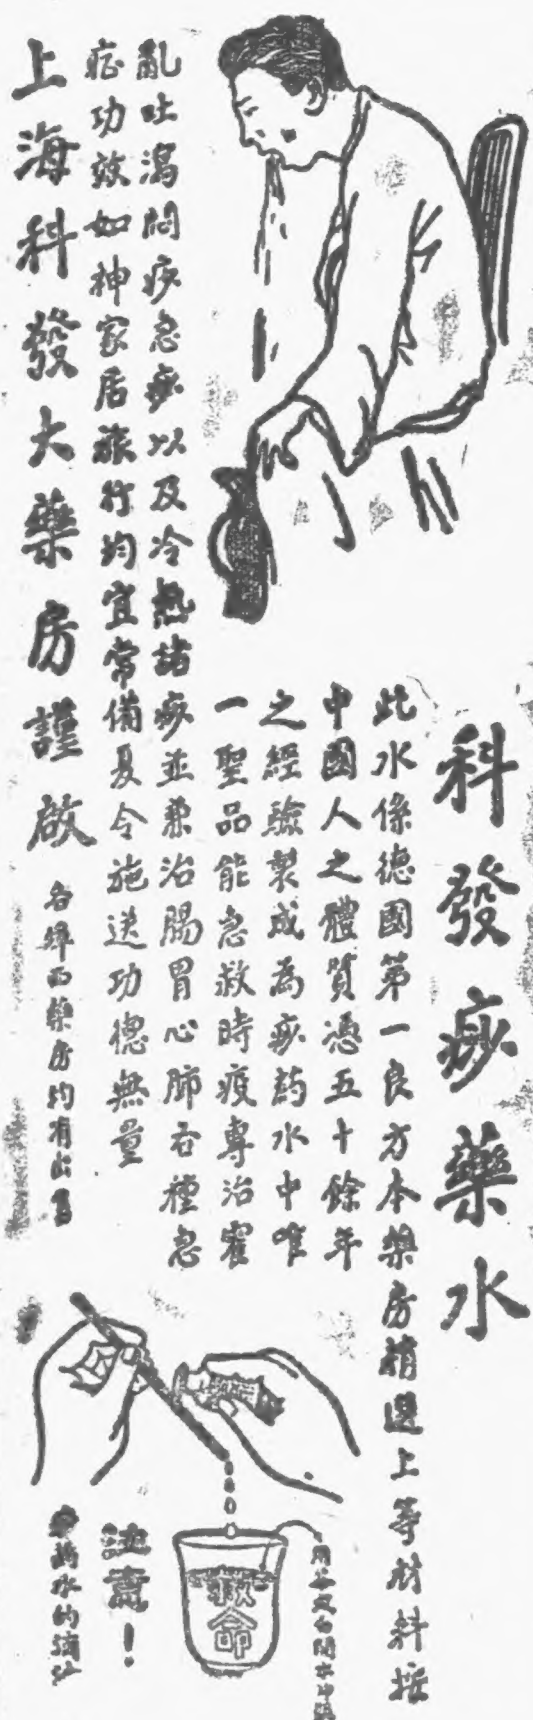 科發痧藥水
此水係德國第一良方本藥房精選上等材料按
中國人之體質憑五十餘年
之經驗製成為痧葯水中唯
一聖品能急救時疫專治霍
亂吐瀉悶痧急痧以及冷熱諸痧並兼治腸胃心肺各種急
症功效如神家居旅行均宜常備夏令施送功德無量
上海科發大藥房謹啟
各埠西藥房均有出售
救命
注意！
葯水的滴